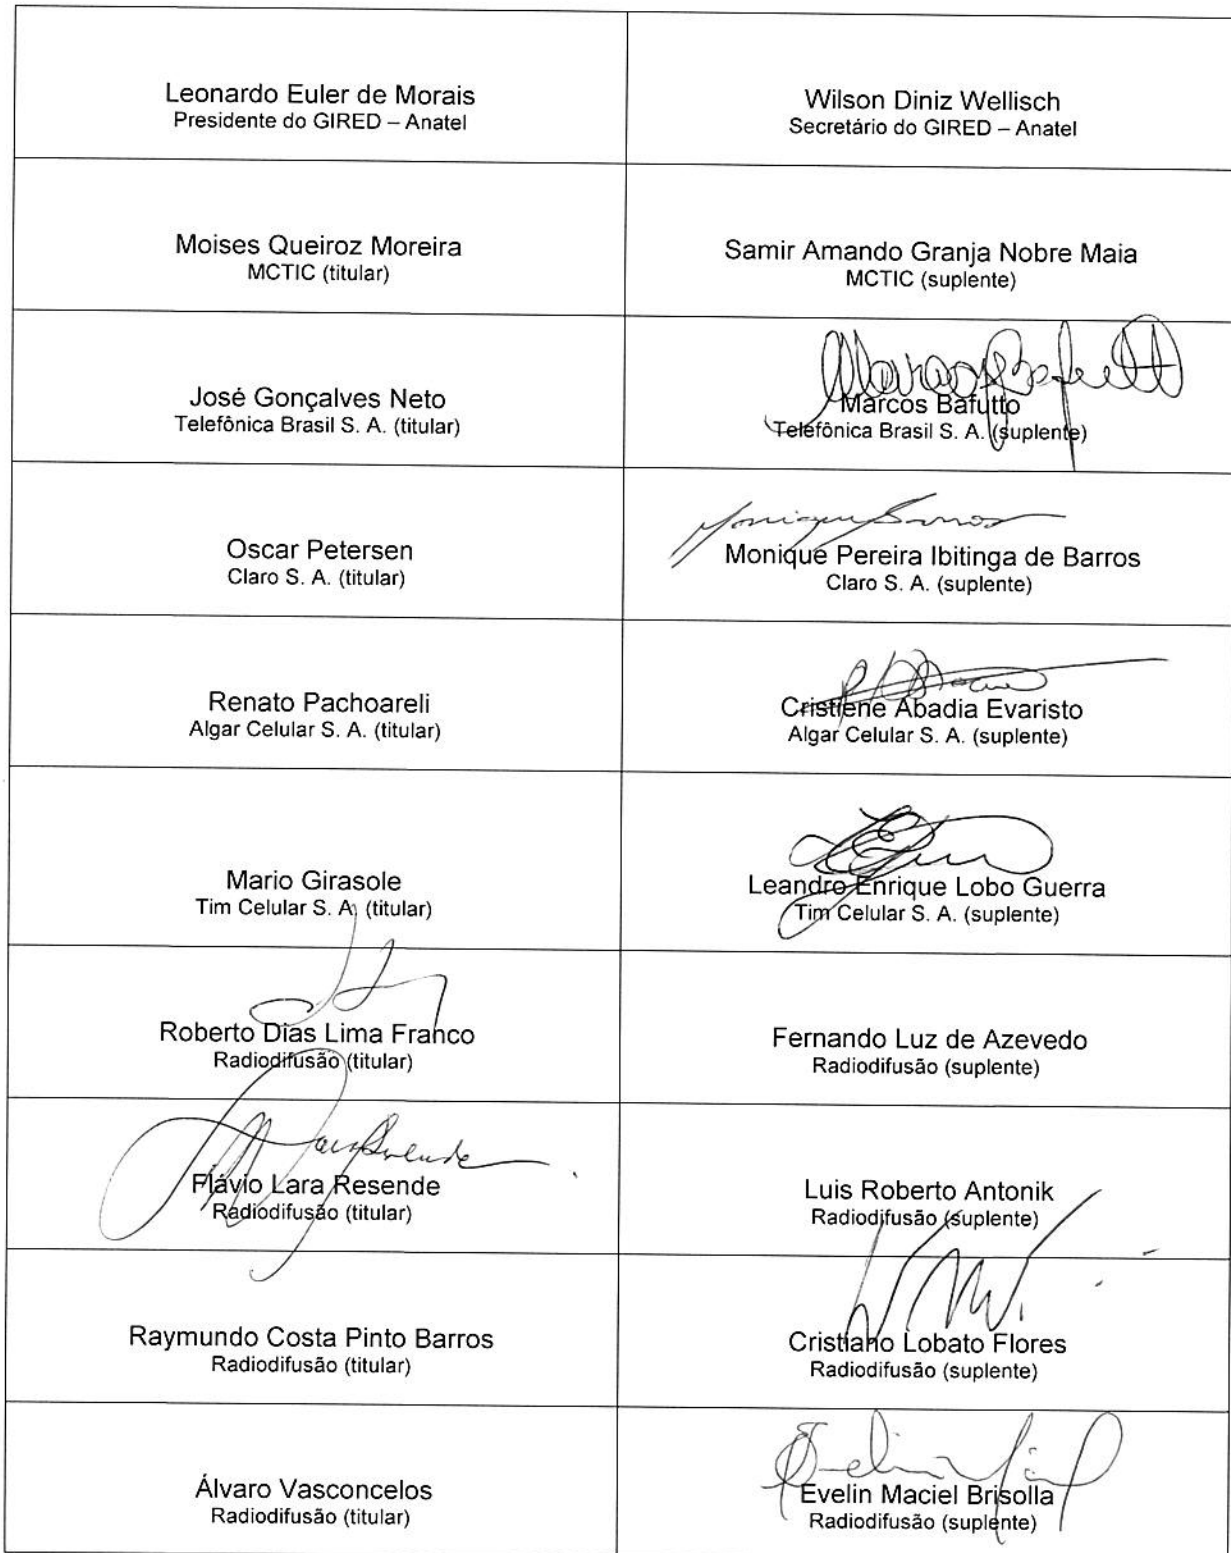 Leonardo Euler de Morais
Presidente do GIRED – Anatel
Wilson Diniz Wellisch
Secretário do GIRED – Anatel
Moises Queiroz Moreira
MCTIC (titular)
Samir Amando Granja Nobre Maia
MCTIC (suplente)
José Gonçalves Neto
Telefônica Brasil S. A. (titular)
Marcos Bafutto
Telefônica Brasil S. A. (suplente)
Oscar Petersen
Claro S. A. (titular)
Monique Pereira Ibitinga de Barros
Claro S. A. (suplente)
Renato Pachoareli
Algar Celular S. A. (titular)
Cristiene Abadia Evaristo
Algar Celular S. A. (suplente)
Mario Girasole
Tim Celular S. A. (titular)
Leandro Enrique Lobo Guerra
Tim Celular S. A. (suplente)
Roberto Dias Lima Franco
Radiodifusão (titular)
Fernando Luz de Azevedo
Radiodifusão (suplente)
Flávio Lara Resende
Radiodifusão (titular)
Luis Roberto Antonik
Radiodifusão (suplente)
Raymundo Costa Pinto Barros
Radiodifusão (titular)
Cristiano Lobato Flores
Radiodifusão (suplente)
Álvaro Vasconcelos
Radiodifusão (titular)
Evelin Maciel Brisolla
Radiodifusão (suplente)